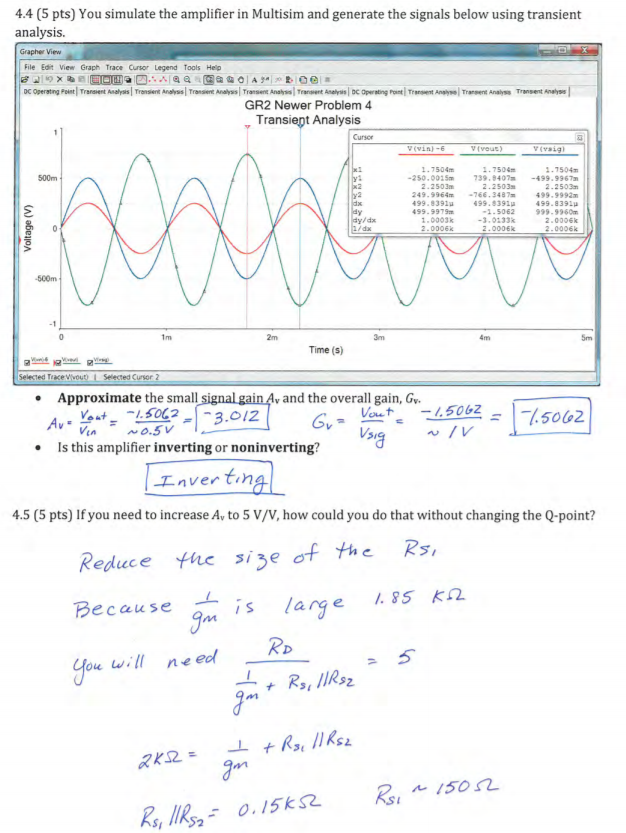 4.4 (5 pts) You simulate the amplifier in Multisim and generate the signals below using transient
analysis.
Grapher View
File Edit View Graph Trace Cursor Legend Tools Help
DC Operating Point | Transient Analysis | Transient Analysis | Transient Analysis | Transient Analysis | Transient Analysis | DC Operating Point | Transient Analysis | Transient Analysis | Transient Analysis |
GR2 Newer Problem 4
Transient Analysis
Cursor
V(vin)-6 V(vout) V(vsig)
x1 1.7504m 1.7504m 1.7504m
y1 -250.0015m 739.8407m -499.9967m
x2 2.2503m 2.2503m 2.2503m
y2 249.9964m -766.3487m 499.9992m
dx 499.8391µ 499.8391µ 499.8391µ
dy 499.9979m -1.5062 999.9960m
dy/dx 1.0003k -3.0133k 2.0006k
1/dx 2.0006k 2.0006k 2.0006k
Voltage (V)
1
500m
0
-500m
-1
0 1m 2m 3m 4m 5m
Time (s)
V(vin)-6 V(vout) V(vsig)
Selected Trace:V(vout) | Selected Cursor: 2
• Approximate the small signal gain Av and the overall gain, Gv.
Av = Vout/Vin = -1.5062/~0.5V = -3.012 Gv = Vout/Vsig = -1.5062/~1V = -1.5062
• Is this amplifier inverting or noninverting?
Inverting
4.5 (5 pts) If you need to increase Av to 5 V/V, how could you do that without changing the Q-point?
Reduce the size of the RS1
Because 1/gm is large 1.85 KΩ
You will need RD/(1/gm + RS1//RS2) = 5
2KΩ = 1/gm + RS1//RS2
RS1//RS2 = 0.15KΩ RS1 ~ 150Ω